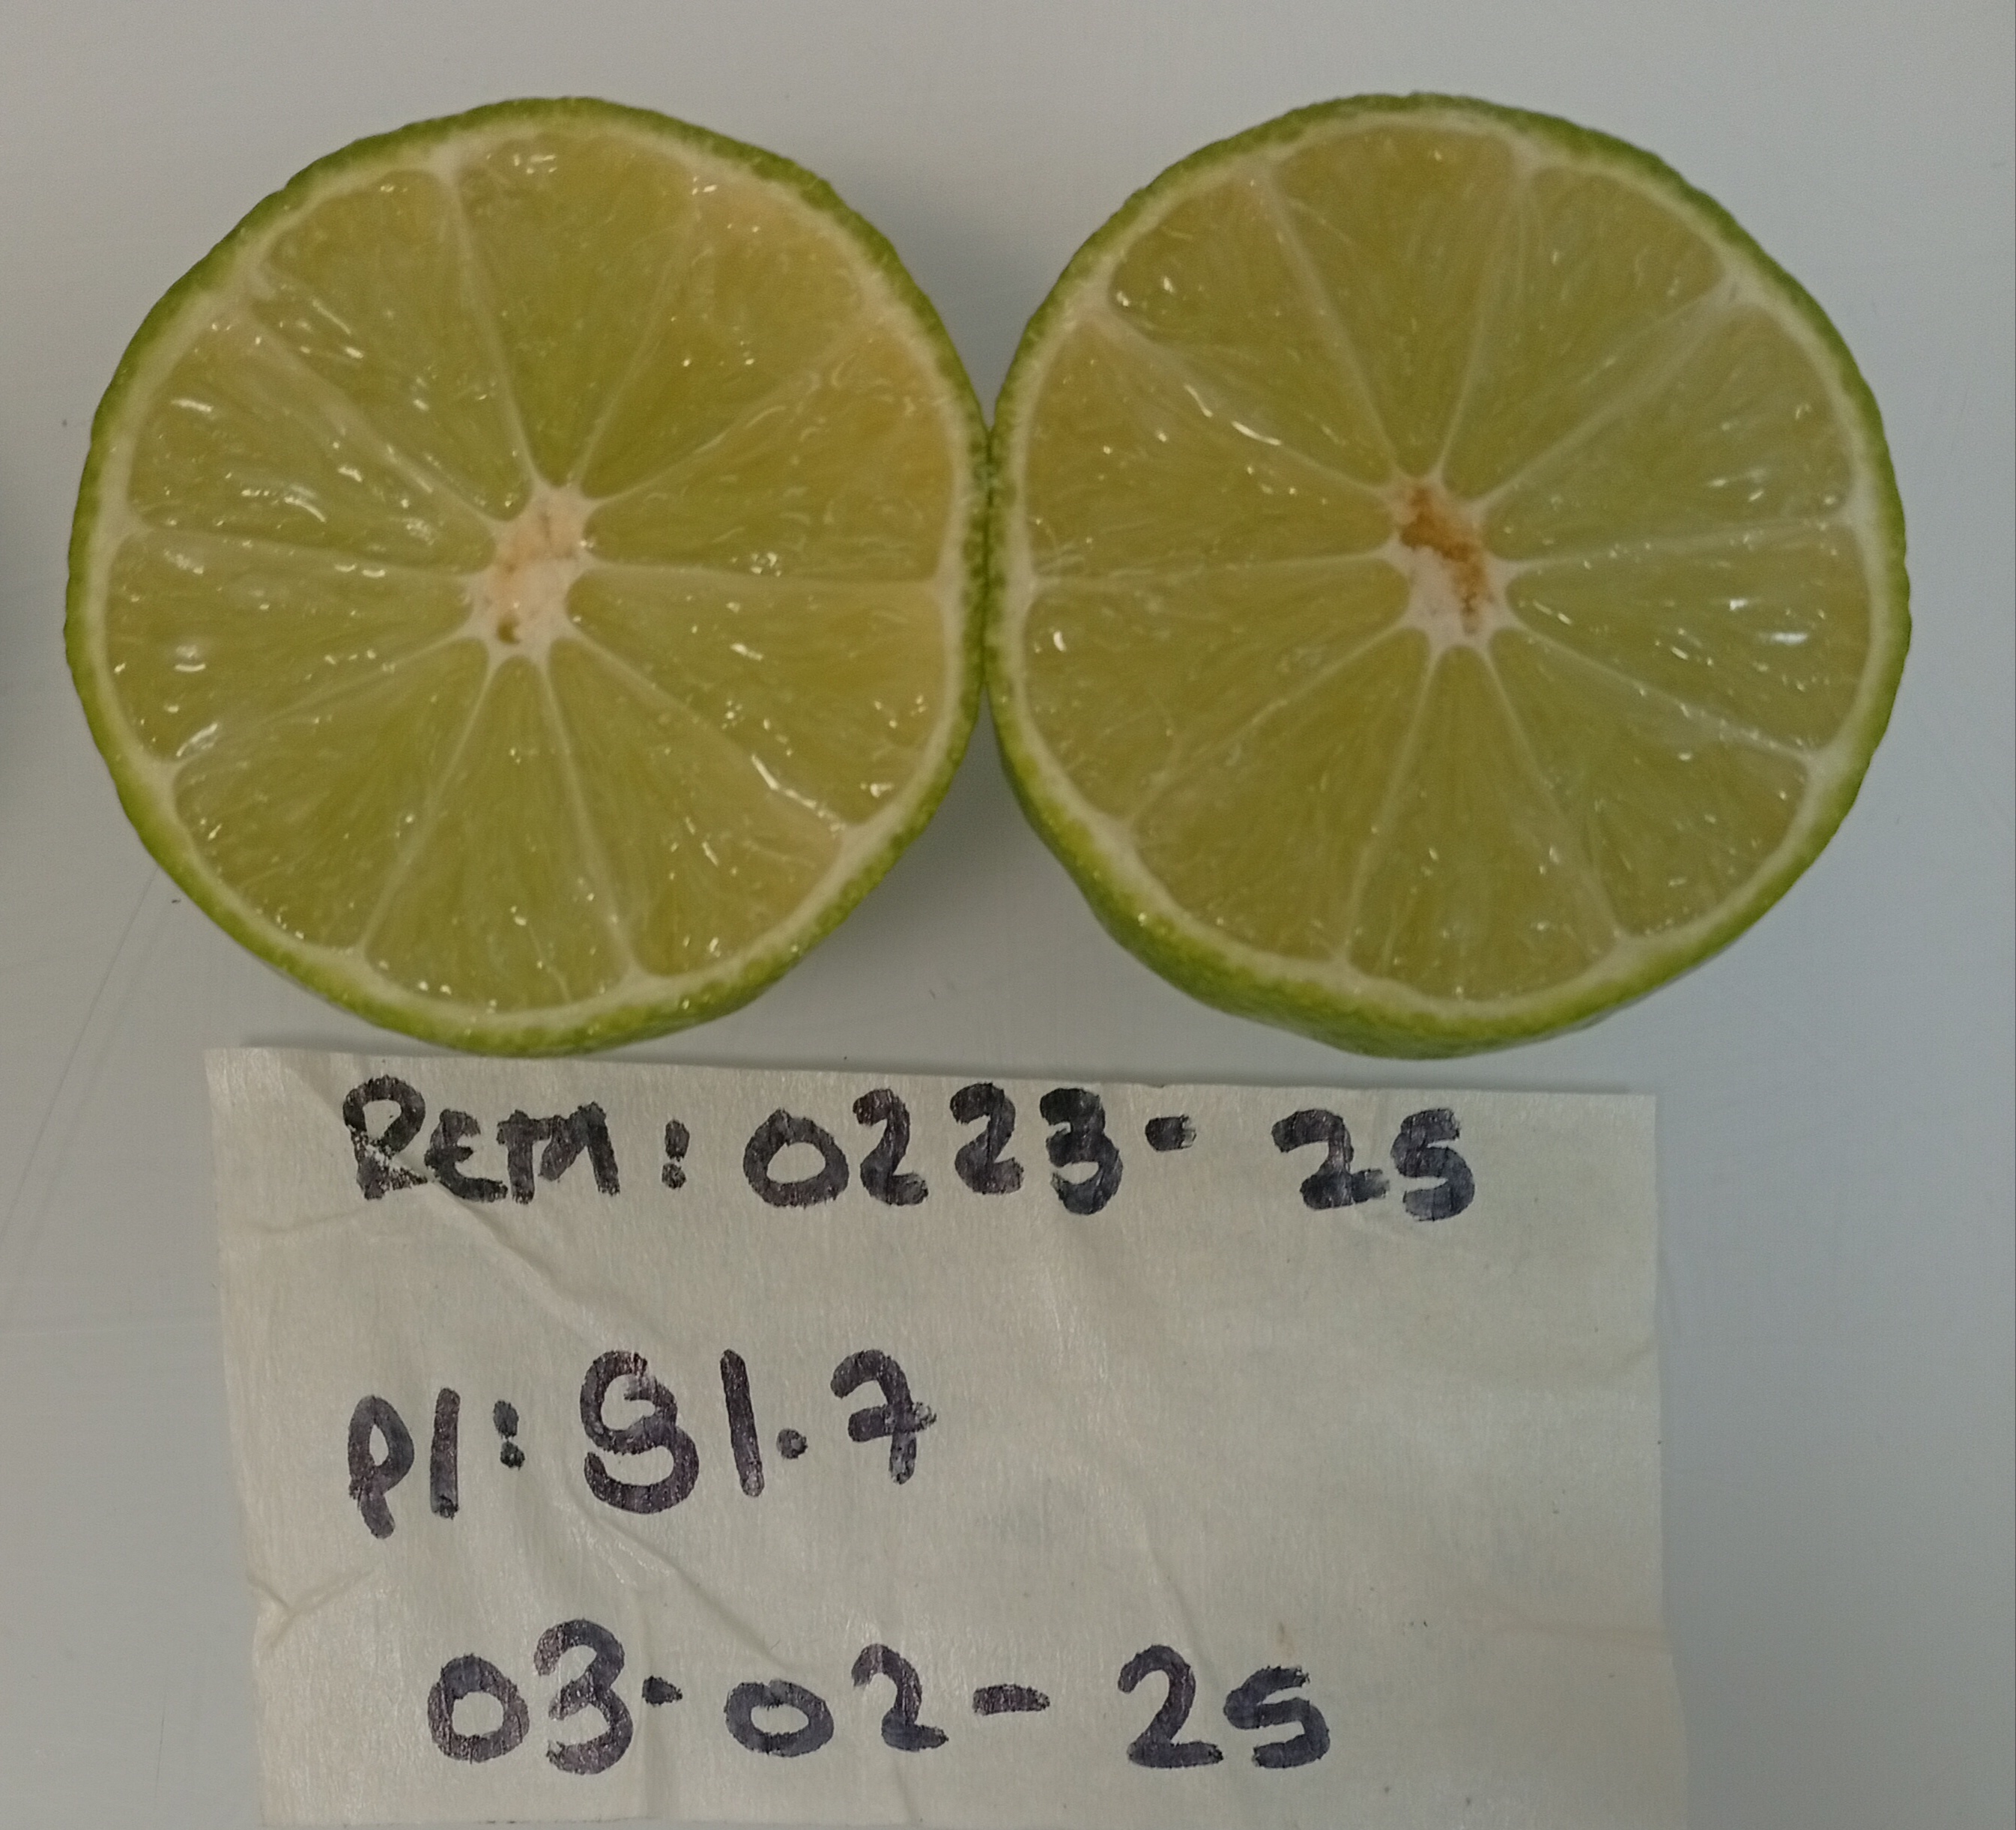 REM: 0223-25
PI: 81.7
03-02-25